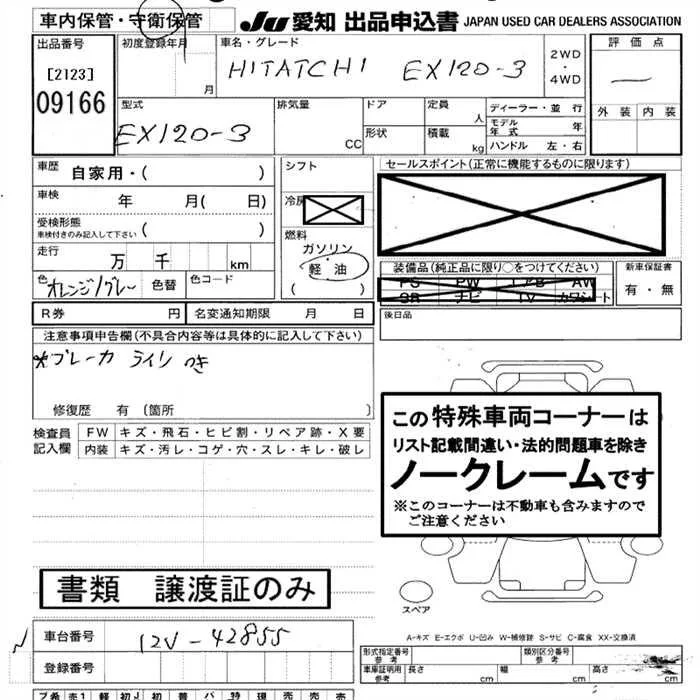 車内保管・守衛保管 JU 愛知 出品申込書 JAPAN USED CAR DEALERS ASSOCIATION
出品番号 初度登録年月 車名・グレード 2WD・4WD 評価点
[2123] 月 HITATCHI EX120-3
09166 外装 内装
型式 排気量 ドア 定員 ディーラー・並行
人 モデル年式 年
EX120-3 CC 形状 積載 kg ハンドル 左・右
車歴 自家用・( ) シフト セールスポイント(正常に機能するものに限ります)
車検 年 月( 日) 冷房
受検形態
車検付きのみ記入して下さい ( ) 燃料
走行 万 千 km ガソリン
軽油 装備品(純正品に限り○をつけてください) 新車保証書
色 オレンジ/グレー 色替 色コード ( ) PS PW エアB AW 有・無
SR ナビ TV カワシート
R券 円 名変通知期限 月 日 後日品
注意事項申告欄(不具合内容等は具体的に記入して下さい)
*ブレーカ ライン つき
修復歴 有 〔箇所 〕
検査員記入欄 FW キズ・飛石・ヒビ割・リペア跡・X要
内装 キズ・汚レ・コゲ・穴・スレ・キレ・破レ
この特殊車両コーナーは
リスト記載間違い・法的問題車を除き
ノークレームです
※このコーナーは不動車も含みますので
ご注意ください
書類 譲渡証のみ
スペア
A-キズ E-エクボ U-凹み W-補修跡 S-サビ C-腐食 XX-交換済
車台番号 12V-42855
登録番号
型式指定番号 参考 類別区分番号 参考
車庫証明用 参考 長さ cm 幅 cm 高さ cm